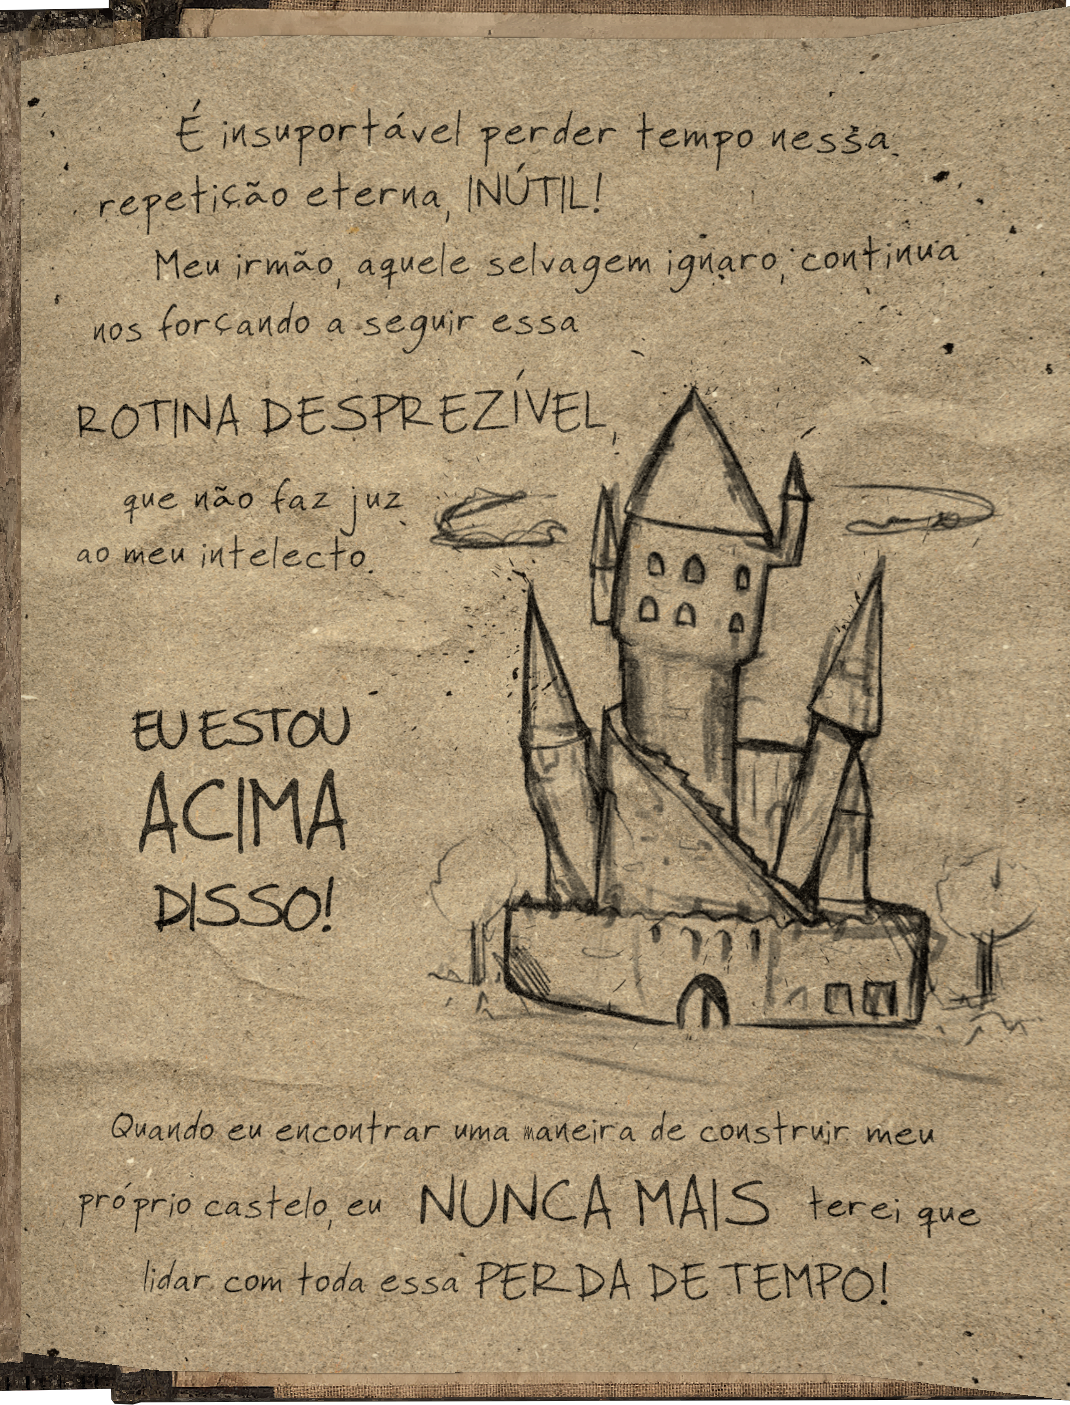 É insuportável perder tempo nessa
repetição eterna, INÚTIL!
Meu irmão, aquele selvagem ignaro, continua
nos forçando a seguir essa
ROTINA DESPREZÍVEL,
que não faz juz
ao meu intelecto.
EU ESTOU
ACIMA
DISSO!
Quando eu encontrar uma maneira de construir meu
próprio castelo, eu NUNCA MAIS terei que
lidar com toda essa PERDA DE TEMPO!